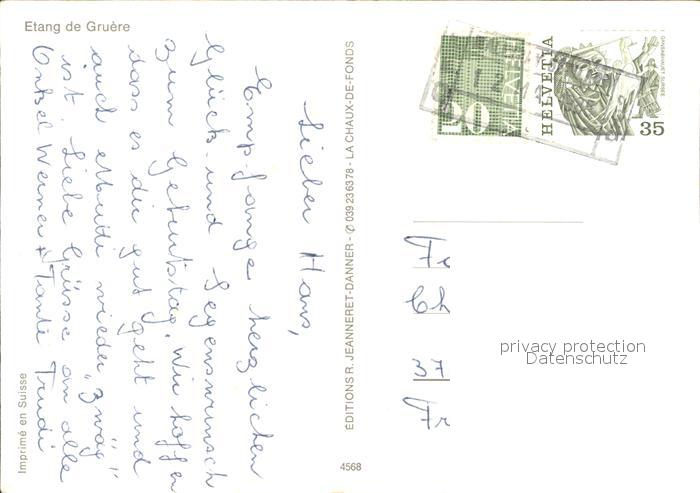 Etang de Gruère
Lieber Hans,
Empfange herzlichen
Glück- und Segenswunsch
zum Geburtstag. Wir hoffen
dass es dir gut geht und
auch Mundi wieder "zwäg"
ist. Liebe Grüsse an alle
Onkel Werner + Tante Trudi
Imprimé en Suisse
EDITIONS R. JEANNERET-DANNER - ✆ 039 236378 - LA CHAUX-DE-FONDS
4568
20
HELVETIA
HELVETIA
35
GANSABHAUET SURSEE
privacy protection
Datenschutz